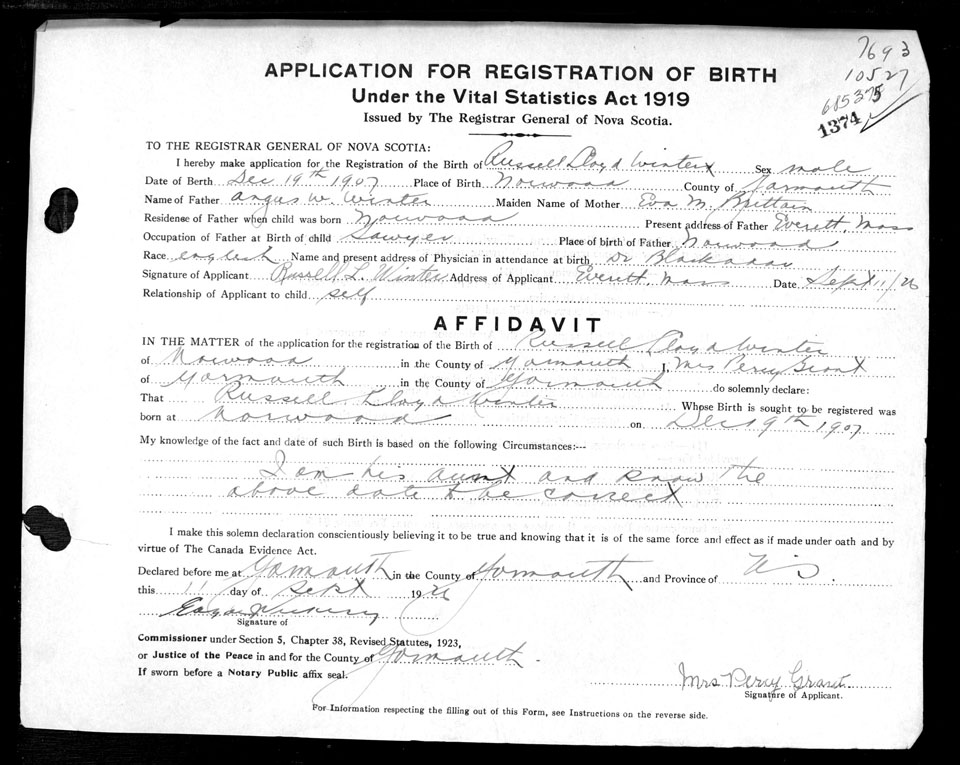 7693
10527
685375
1374
APPLICATION FOR REGISTRATION OF BIRTH
Under the Vital Statistics Act 1919
Issued by The Registrar General of Nova Scotia.
TO THE REGISTRAR GENERAL OF NOVA SCOTIA:
I hereby make application for the Registration of the Birth of Russell Lloyd Winter Sex male
Date of Berth Dec 19th 1907 Place of Birth Norwood County of Yarmouth
Name of Father Angus W. Winter Maiden Name of Mother Eva M. Brittain
Residense of Father when child was born Norwood Present address of Father Everett, Mass
Occupation of Father at Birth of child Sawyer Place of birth of Father Norwood
Race english Name and present address of Physician in attendance at birth Dr Blackadar
Signature of Applicant Russell L. Winter Address of Applicant Everett, Mass Date Sept 11/26
Relationship of Applicant to child self
AFFIDAVIT
IN THE MATTER of the application for the registration of the Birth of Russell Lloyd Winter
of Norwood in the County of Yarmouth I, Mrs Percy Grant
of Yarmouth in the County of Yarmouth do solemnly declare:
That Russell Lloyd Winter Whose Birth is sought to be registered was
born at Norwood on Dec 19th 1907
My knowledge of the fact and date of such Birth is based on the following Circumstances:--
I am his aunt and know the
above date to be correct
I make this solemn declaration conscientiously believing it to be true and knowing that it is of the same force and effect as if made under oath and by
virtue of The Canada Evidence Act.
Declared before me at Yarmouth in the County of Yarmouth and Province of N.S.
this 11 day of Sept 1926
Signature of
Commissioner under Section 5, Chapter 38, Revised Statutes, 1923,
or Justice of the Peace in and for the County of Yarmouth.
If sworn before a Notary Public affix seal.
Mrs Percy Grant.
Signature of Applicant.
For Information respecting the filling out of this Form, see Instructions on the reverse side.